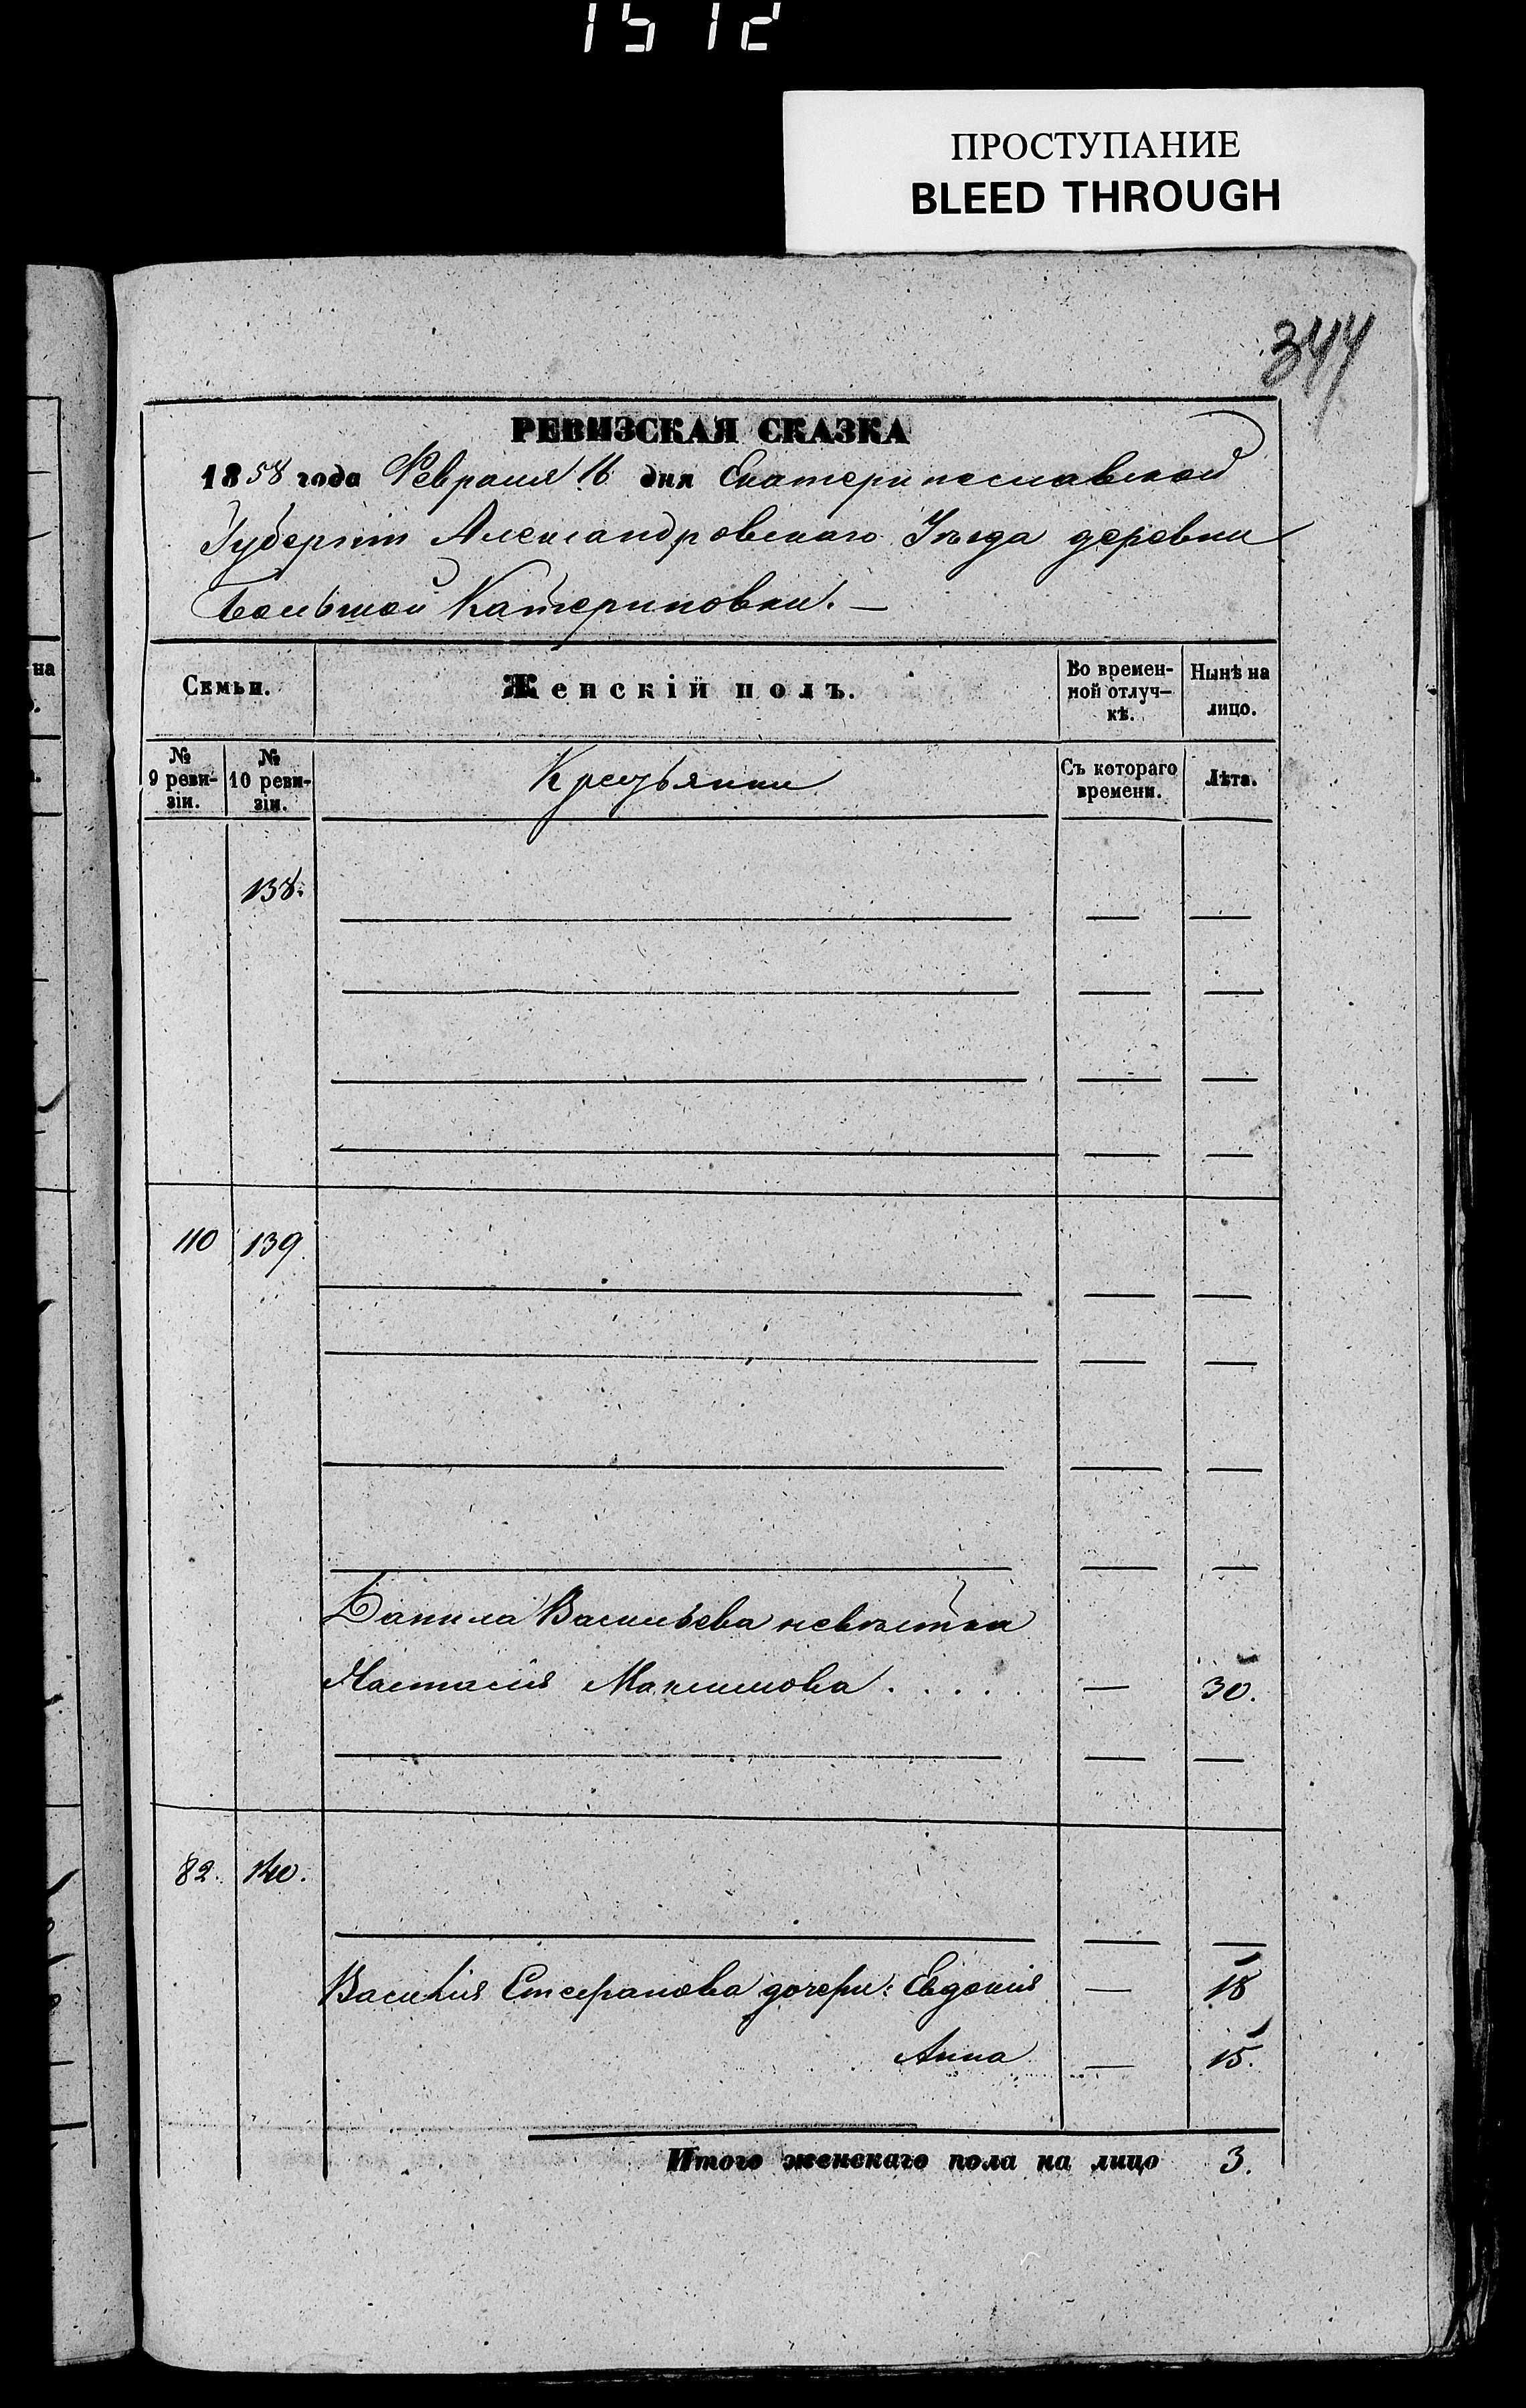 1512
ПРОСТУПАНИЕ
BLEED THROUGH
344
РЕВИЗСКАЯ СКАЗКА
1858 года Февраля 16 дня Екатеринославской
Губерніи Александровскаго Уѣзда деревни
Большой Катериновки. —
на
Семьи. Женскій полъ. Во времен-ной отлуч-кѣ. Нынѣ на лицо.
№ 9 реви-зіи. № 10 реви-зіи. Крестьянки Съ котораго времени. Лѣта.
138.
110 139
Данила Васильева невѣстка
Настасія Максимова . . . . — 30.
82. 140.
Василія Стефанова дочери: Евдокія — 18
Анна — 15.
Итого женскаго пола на лицо 3.